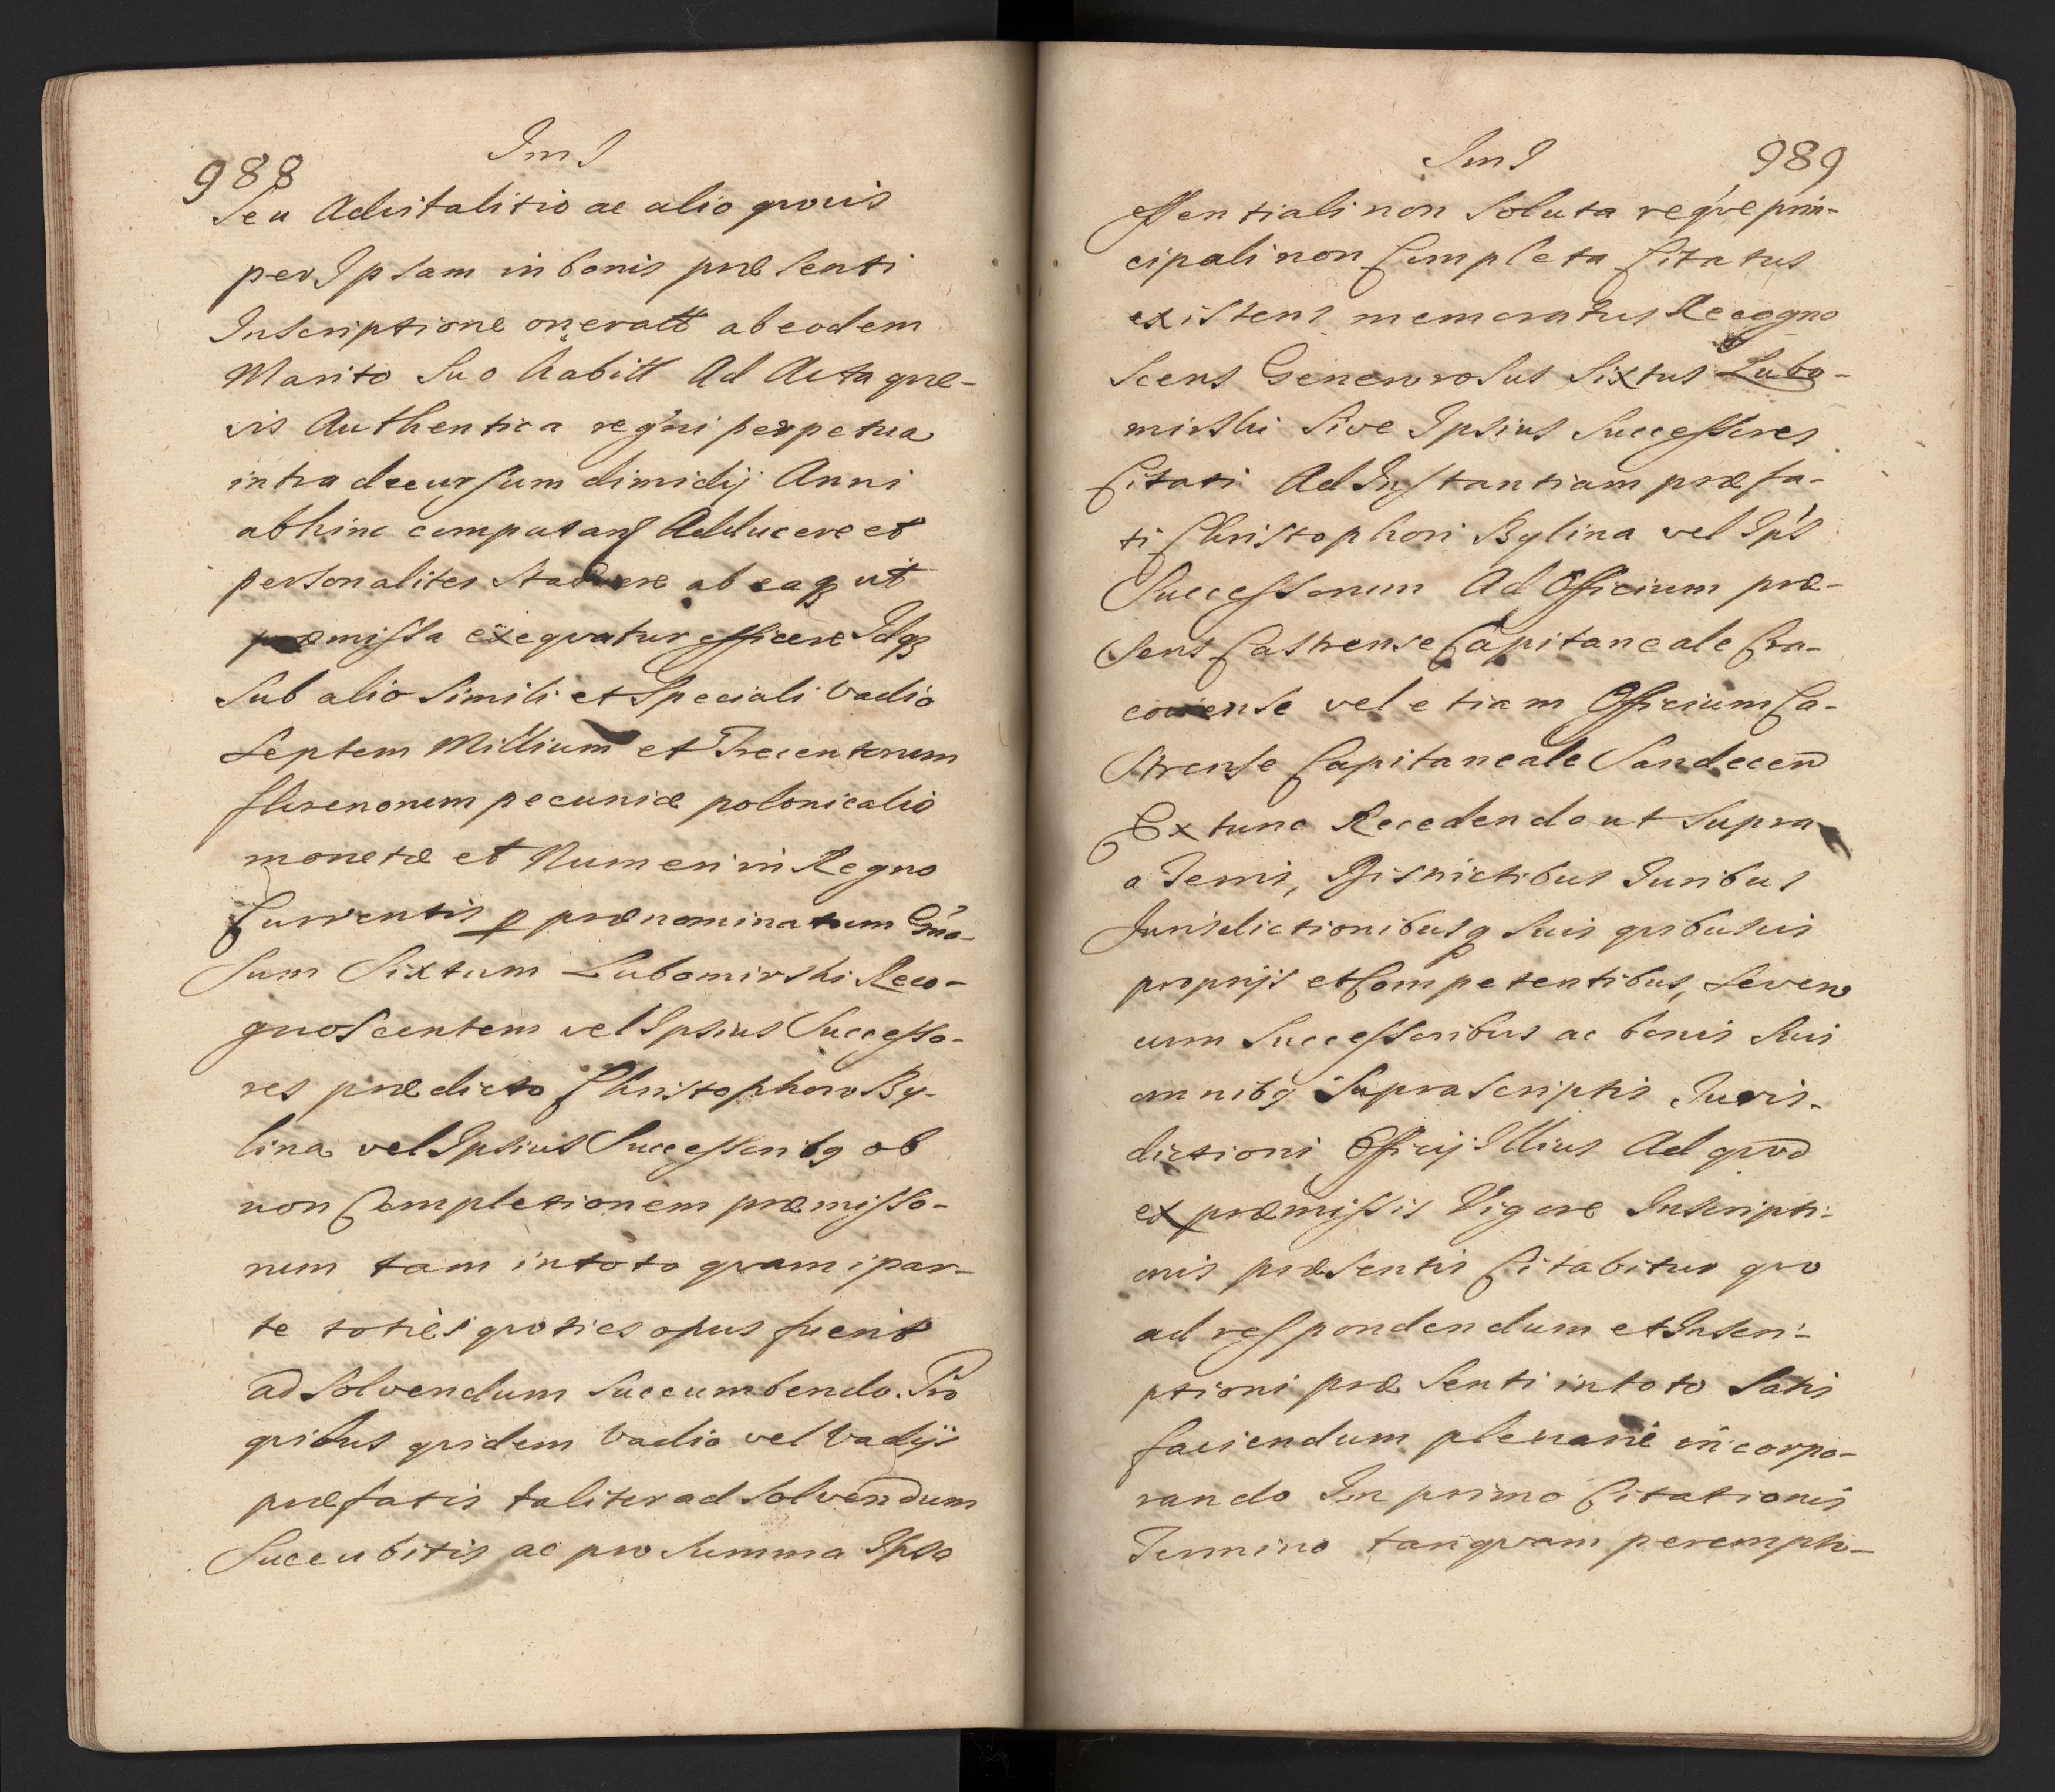 988
JmJ
Seu Advitalitio ac alio qvovis
per Ipsam in bonis præsenti
Inscriptione oneratt ab eodem
Marito Suo habitt Ad Acta qvæ-
vis Authentica regni perpetua
intra decursum dimidij Anni
abhinc computan Adducere et
personaliter Statuere ab eaq ut
præmissa exeqvatur efficere Idq
Sub alio Simili et Speciali Vadio
Septem Millium et Trecentorum
florenorum pecuniæ polonicalis
monetæ et Numeri in Regno
Currentis p prænominatum Gno-
sum Sixtum Lubomirski Reco-
gnoscentem vel Ipsius Successo-
res prædicto Christophoro By-
lina vel Ipsius Successorib9 ob
non Completionem præmisso-
rum tam in toto qvam i par-
te toties qvoties opus fuerit
ad Solvendum Succumbendo. Pro
qvibus qvidem Vadio vel Vadijs
præfatis taliter ad Solvendum
Succubitis ac pro Summa Ipsa
JmJ
989
ssentiali non Soluta reqve prin-
cipali non Completa Citatus
existens memoratus Recogno
scens Generorosus Sixtus Lubo-
mirski Sive Ipsius Successores
Citati Ad Instantiam præfa-
ti Christophori Bylina vel Ips
Successorum Ad Officium præ-
sens Castrense Capitaneale Cra-
coviense vel etiam Officium Ca-
strense Capitaneale Sandecen
Extunc Recedendo ut Supra
a Terris, Districtibus Juribus
Jurisdictionibusq Suis qvibusvis
proprijs et Competentibus, Severo
cum Successoribus ac bonis Suis
omnib9 Suprascriptis Juris-
dictioni Officij Illius Ad qvod
ex præmissis Vigore Inscripti-
onis præsentis Citabitur qvo
ad respondendum et Inscri-
ptioni præsenti in toto Satis
faciendum plenarie incorpo-
rando In primo Citationis
Termino tanqvam perempto-